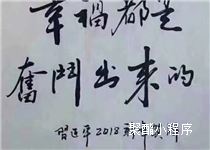 幸福都是
奮鬥出来的
習近平 2018
聚酷小程序